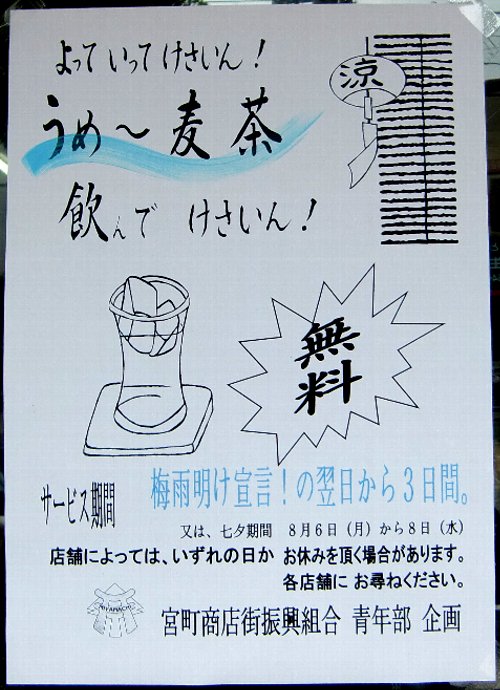 よって いって けさいん！
涼
うめ〜 麦茶
飲んで けさいん！
無料
サービス期間
梅雨明け宣言！の翌日から３日間。
又は、七夕期間 ８月６日（月）から８日（水）
店舗によっては、いずれの日か お休みを頂く場合があります。
各店舗に お尋ねください。
MIYAMACHI
宮町商店街振興組合 青年部 企画